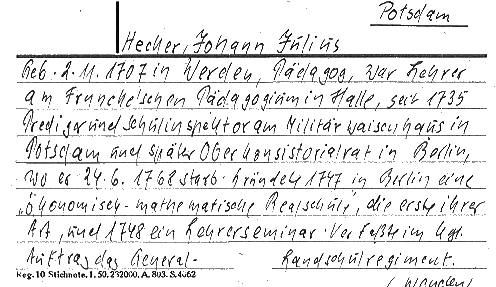 Potsdam
Hecker, Johann Julius
Geb. 2.11.1707 in Werden, Pädagog, war Lehrer
am Francke'schen Pädagogium in Halle, seit 1735
Prediger und Schulinspektor am Militärwaisenhaus in
Potsdam und später Oberkonsistorialrat in Berlin,
wo er 24.6.1768 starb. Gründete 1747 in Berlin eine
„ökonomisch-mathematische Realschule", die erste ihrer
Art, und 1748 ein Lehrerseminar. Verfaßte im kgl.
Auftrag das General- Landschulregiment.
Reg. 10 Stichnote. 1. 50. 232000. A. 803. S. 4662
(Wenden)